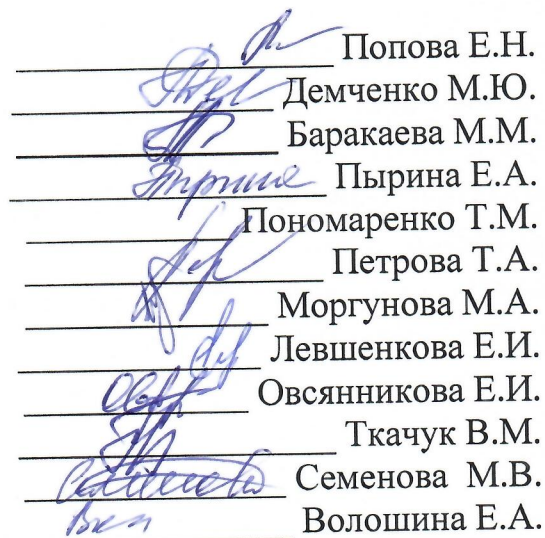 Попова Е.Н.
Демченко М.Ю.
Баракаева М.М.
Пырина Е.А.
Пономаренко Т.М.
Петрова Т.А.
Моргунова М.А.
Левшенкова Е.И.
Овсянникова Е.И.
Ткачук В.М.
Семенова М.В.
Волошина Е.А.